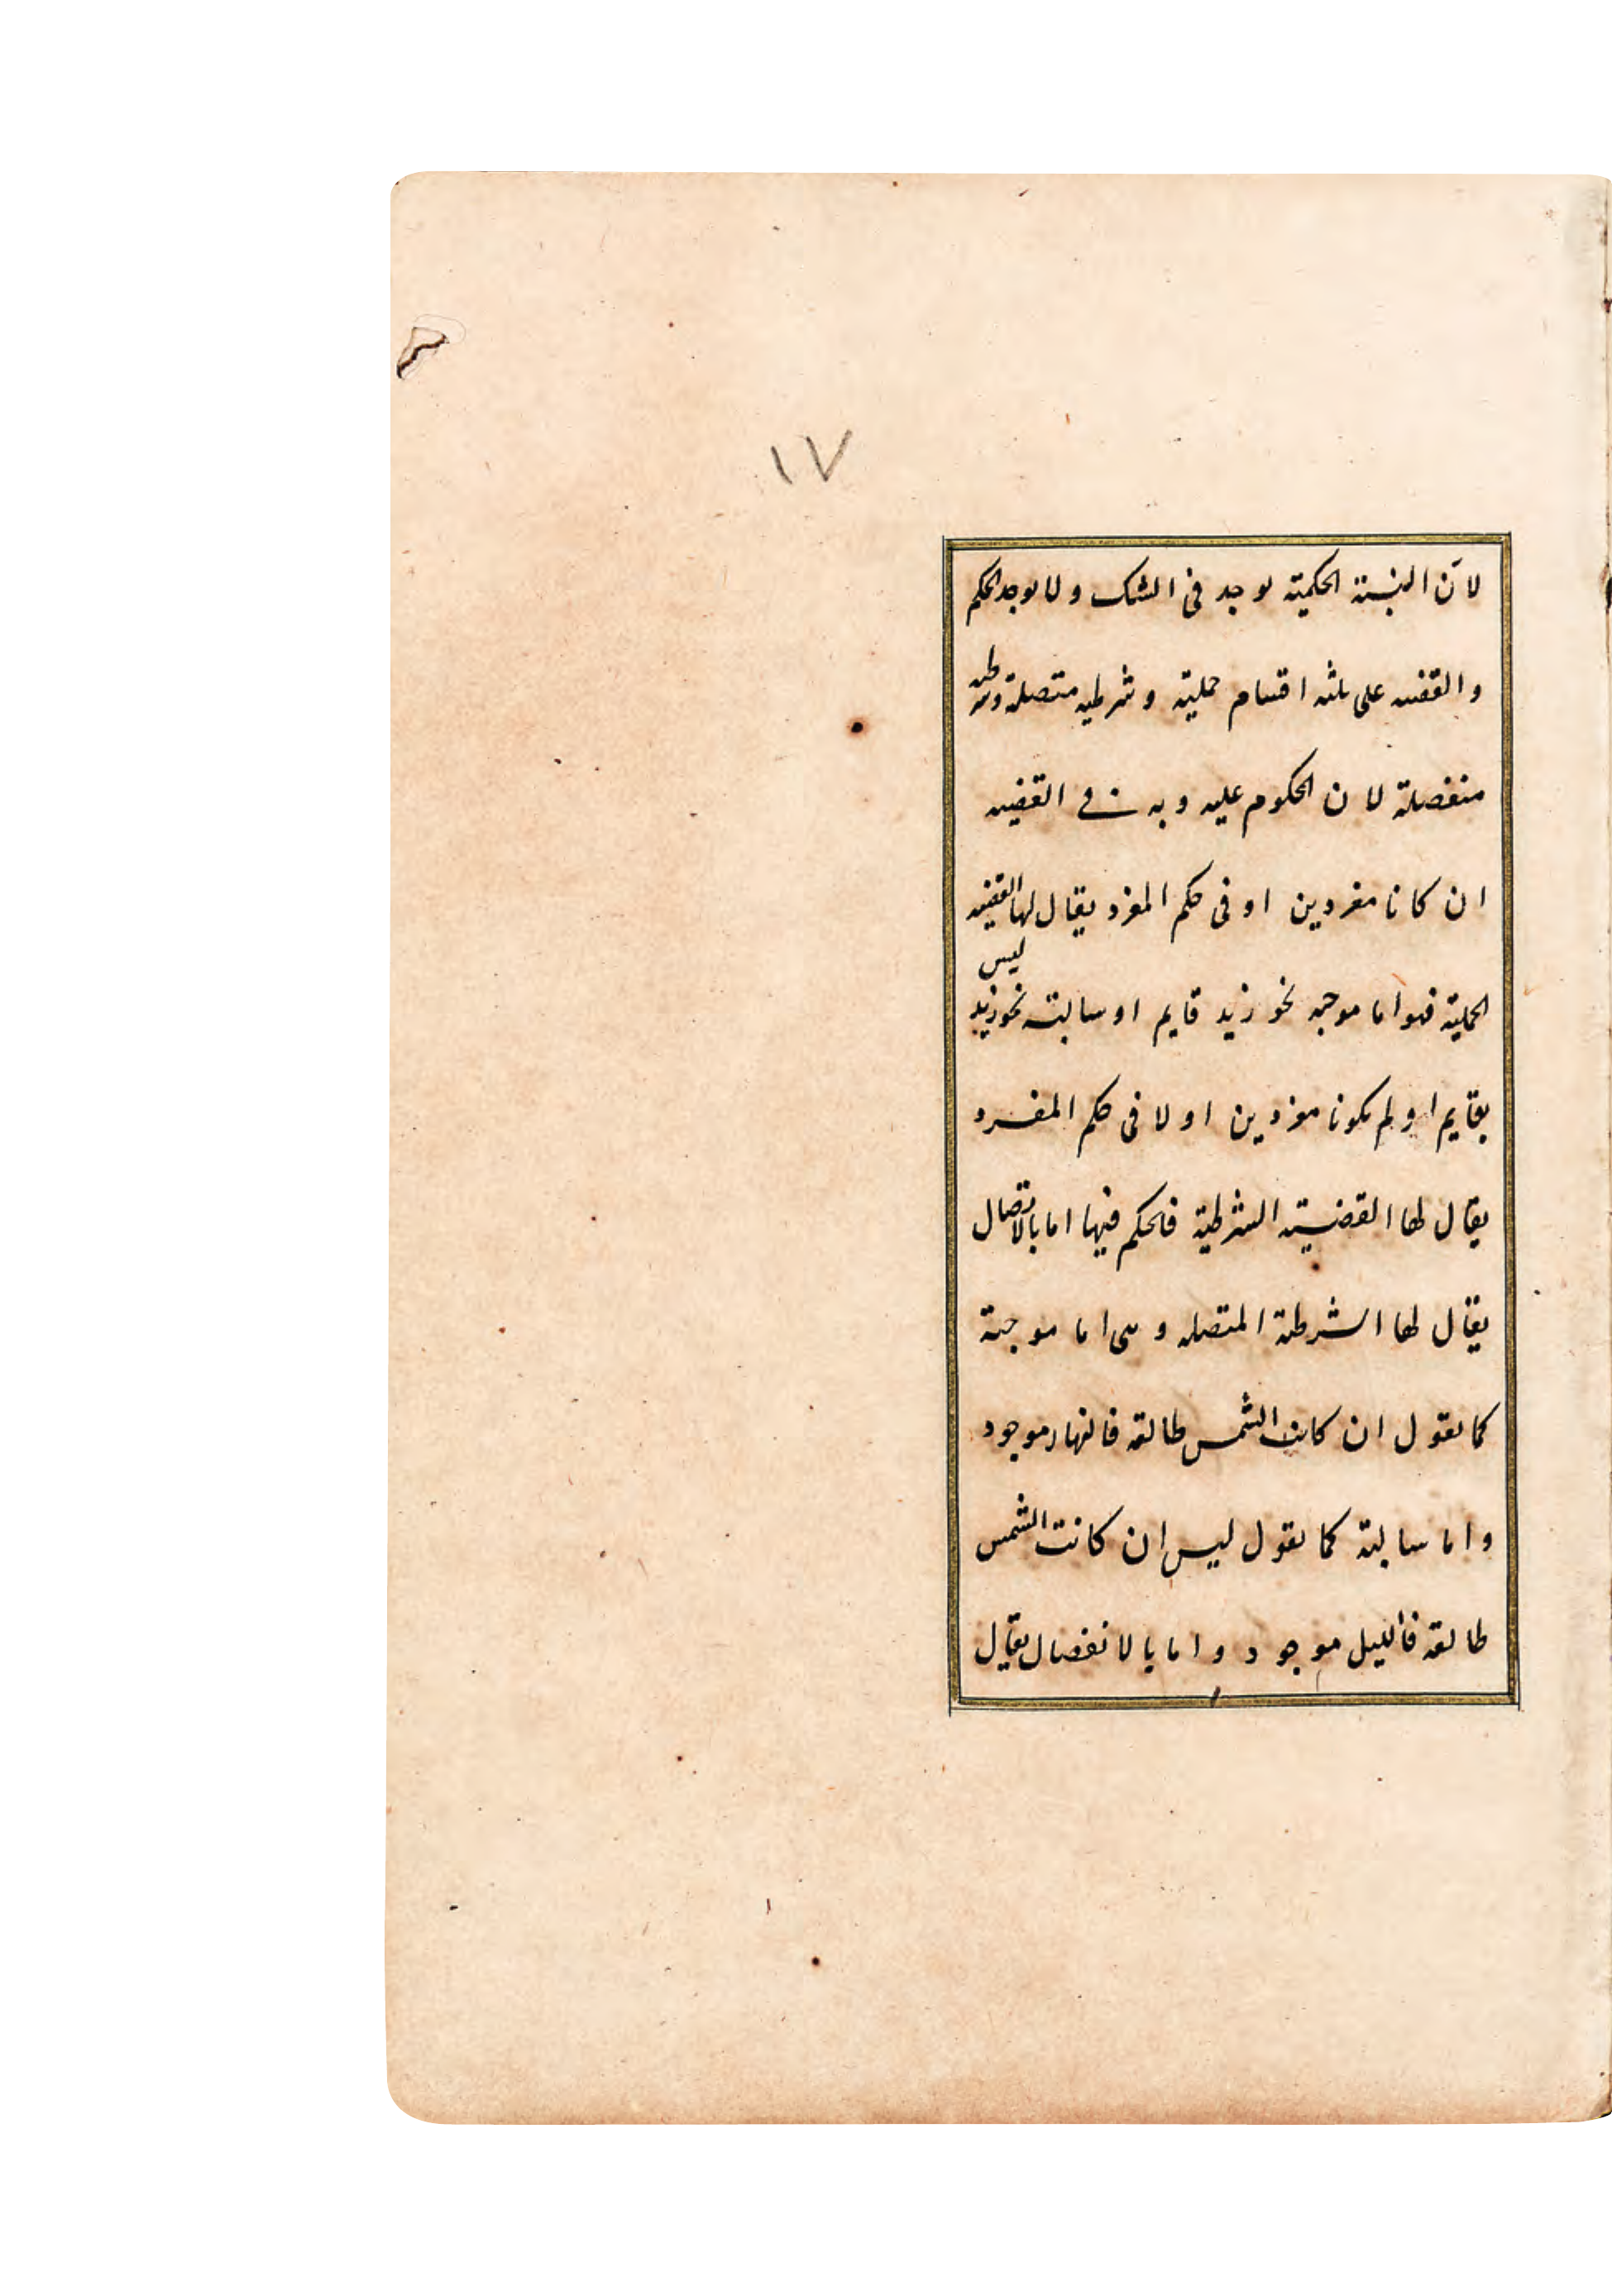 ١٧
لأن النسبة الحكمية توجد في الشك ولا يوجد الحكم
والقضيه على ثلثه اقسام حملية وشرطيه متصلة وشرطيه
منفصلة لان المحكوم عليه وبه في القضيه
ان كانا مفردين او في حكم المفرد يقال لها القضيه
الحملية فهو اما موجبه نحو زيد قايم او سالبة نحو زيد ليس
بقايم او لم يكونا مفردين او لا في حكم المفرد
يقال لها القضية الشرطية فالحكم فيها اما بالاتصال
يقال لها الشرطية المتصله وهي اما موجبة
كما يقول ان كانت الشمس طالعة فالنهار موجود
واما سالبة كما يقول ليس ان كانت الشمس
طالعة فالليل موجود واما بالانفصال يقال